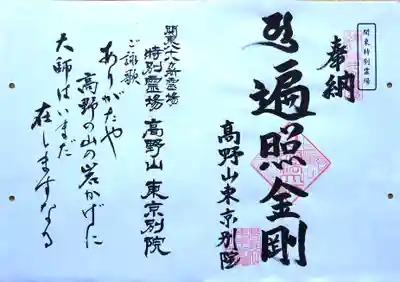 関東特別霊場
奉納
遍照金剛
高野山東京別院
関東八十八ヶ所霊場
特別霊場 高野山 東京別院
ご詠歌
ありがたや
高野の山の岩かげに
大師はいまだ
在しますなる